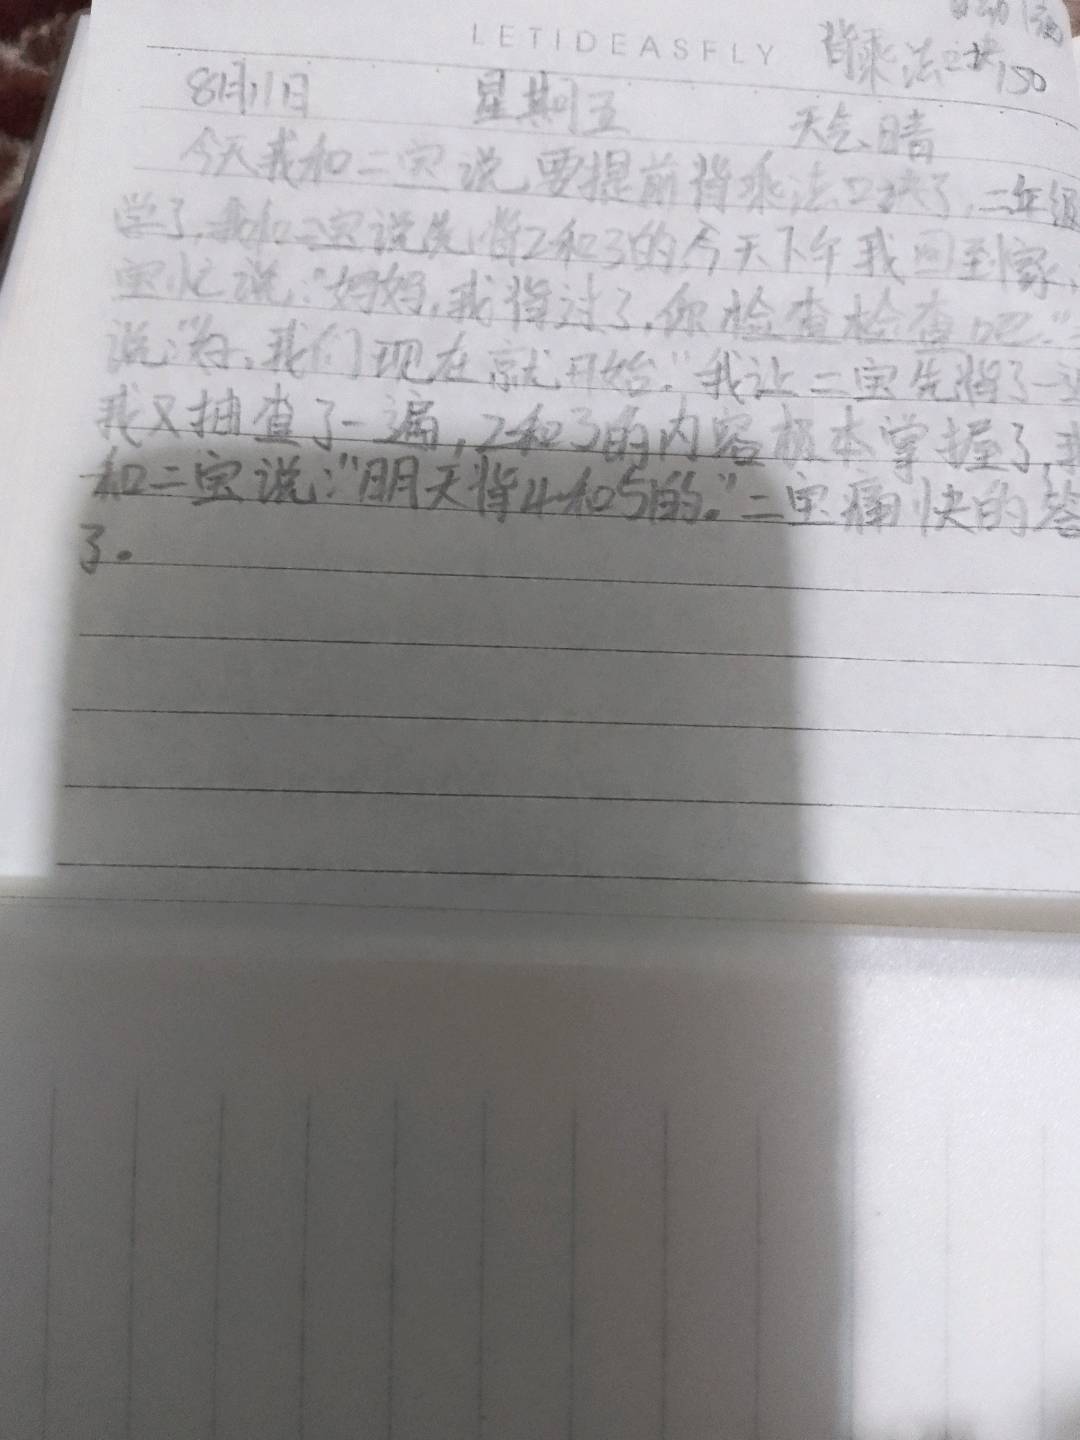 LETIDEASFLY
背乘法口诀150
8月11日 星期五 天气晴
今天我和二宝说,要提前背乘法口诀了,二年级
学了,我和二宝说先背2和3的今天下午我回到家,
宝忙说:"妈妈,我背过了,你检查检查吧."
说:"好,我们现在就开始."我让二宝先背了一遍
我又抽查了一遍,2和3的内容根本掌握了,我
和二宝说:"明天背4和5的。"二宝痛快的答
了。